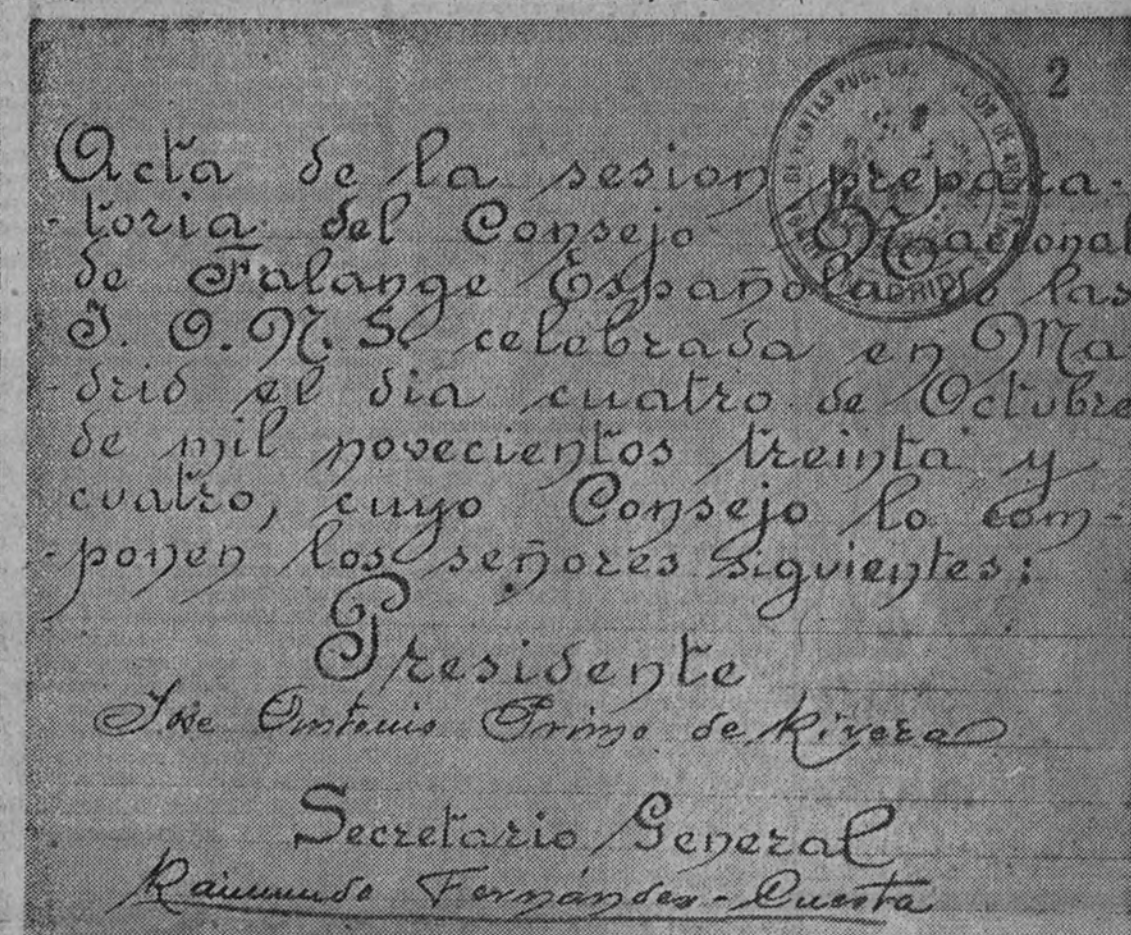 2
Acta de la sesion prepara-
-toria del Consejo Nacional
de Falange Española de las
J. O. N. S. celebrada en Ma-
-drid el dia cuatro de Octubre
de mil novecientos treinta y
cuatro, cuyo Consejo lo com-
-ponen los señores siguientes:
Presidente
Jose Antonio Primo de Rivera
Secretario General
Raimundo Fernández-Cuesta